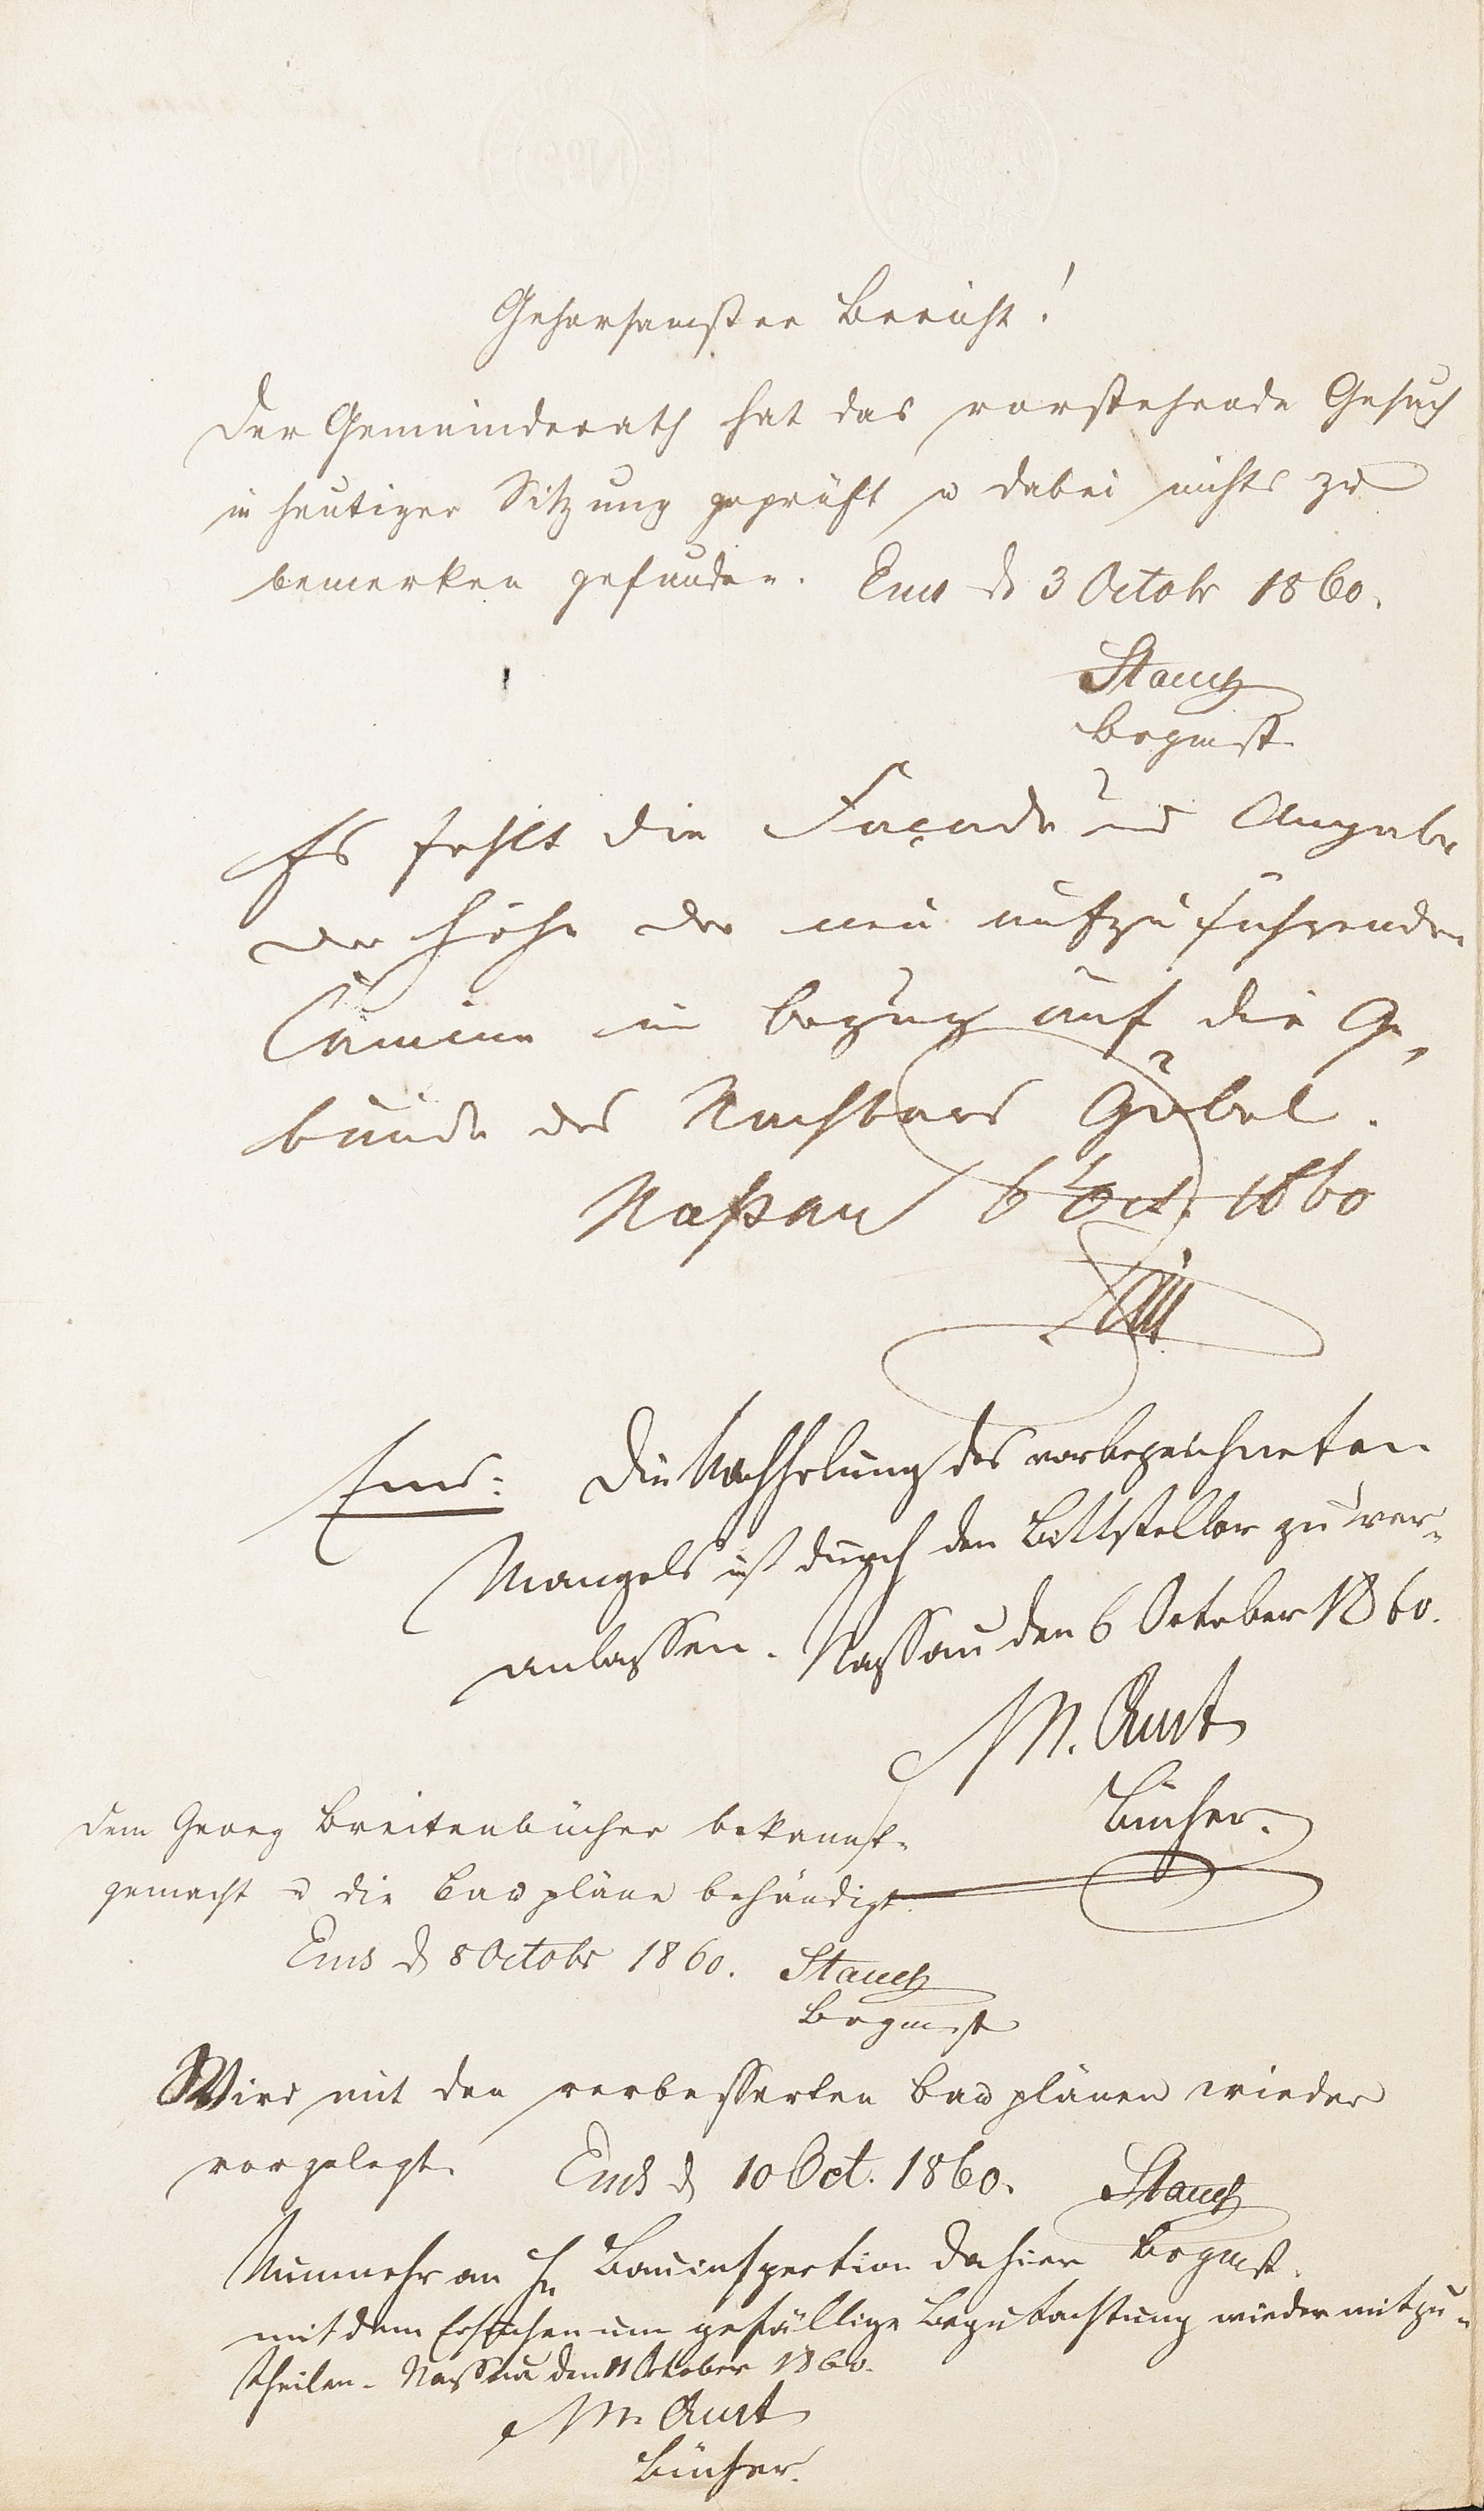 Gehorsamster Bericht!
Der Gemeinderath hat das vorstehende Gesuch
in heutiger Sitzung geprüft u dabei nichts zu
bemerken gefunden. Ems d 3 Octobr 1860.
Stauch
Brgmst
Es fehlt die Façade und Angabe
der Höhe der neu aufzuführenden
Camine in bezug auf die Ge-
bäude des Nachbars Göbel.
Naßau 6 Oct. 1860
Ems: Die Nachholung des vorbezeichneten
Mangels ist durch den Bittsteller zu ver-
anlassen. Nassau den 6 October 1860.
M. Amt
Bücher.
Dem Georg Breitenbücher bekannt-
gemacht u die Baupläne behändigt.
Ems d 8 Octobr 1860. Stauch
Brgmst
Wird mit den verbesserten Bauplänen wieder
vorgelegt. Ems d 10 Oct. 1860. Stauch
Nunmehr an H. Bauinspection dahier Brgmst.
mit dem Ersuchen um gefällige Begutachtung wieder mitzu-
theilen. Nassau den 11 October 1860.
M. Amt
Bücher.